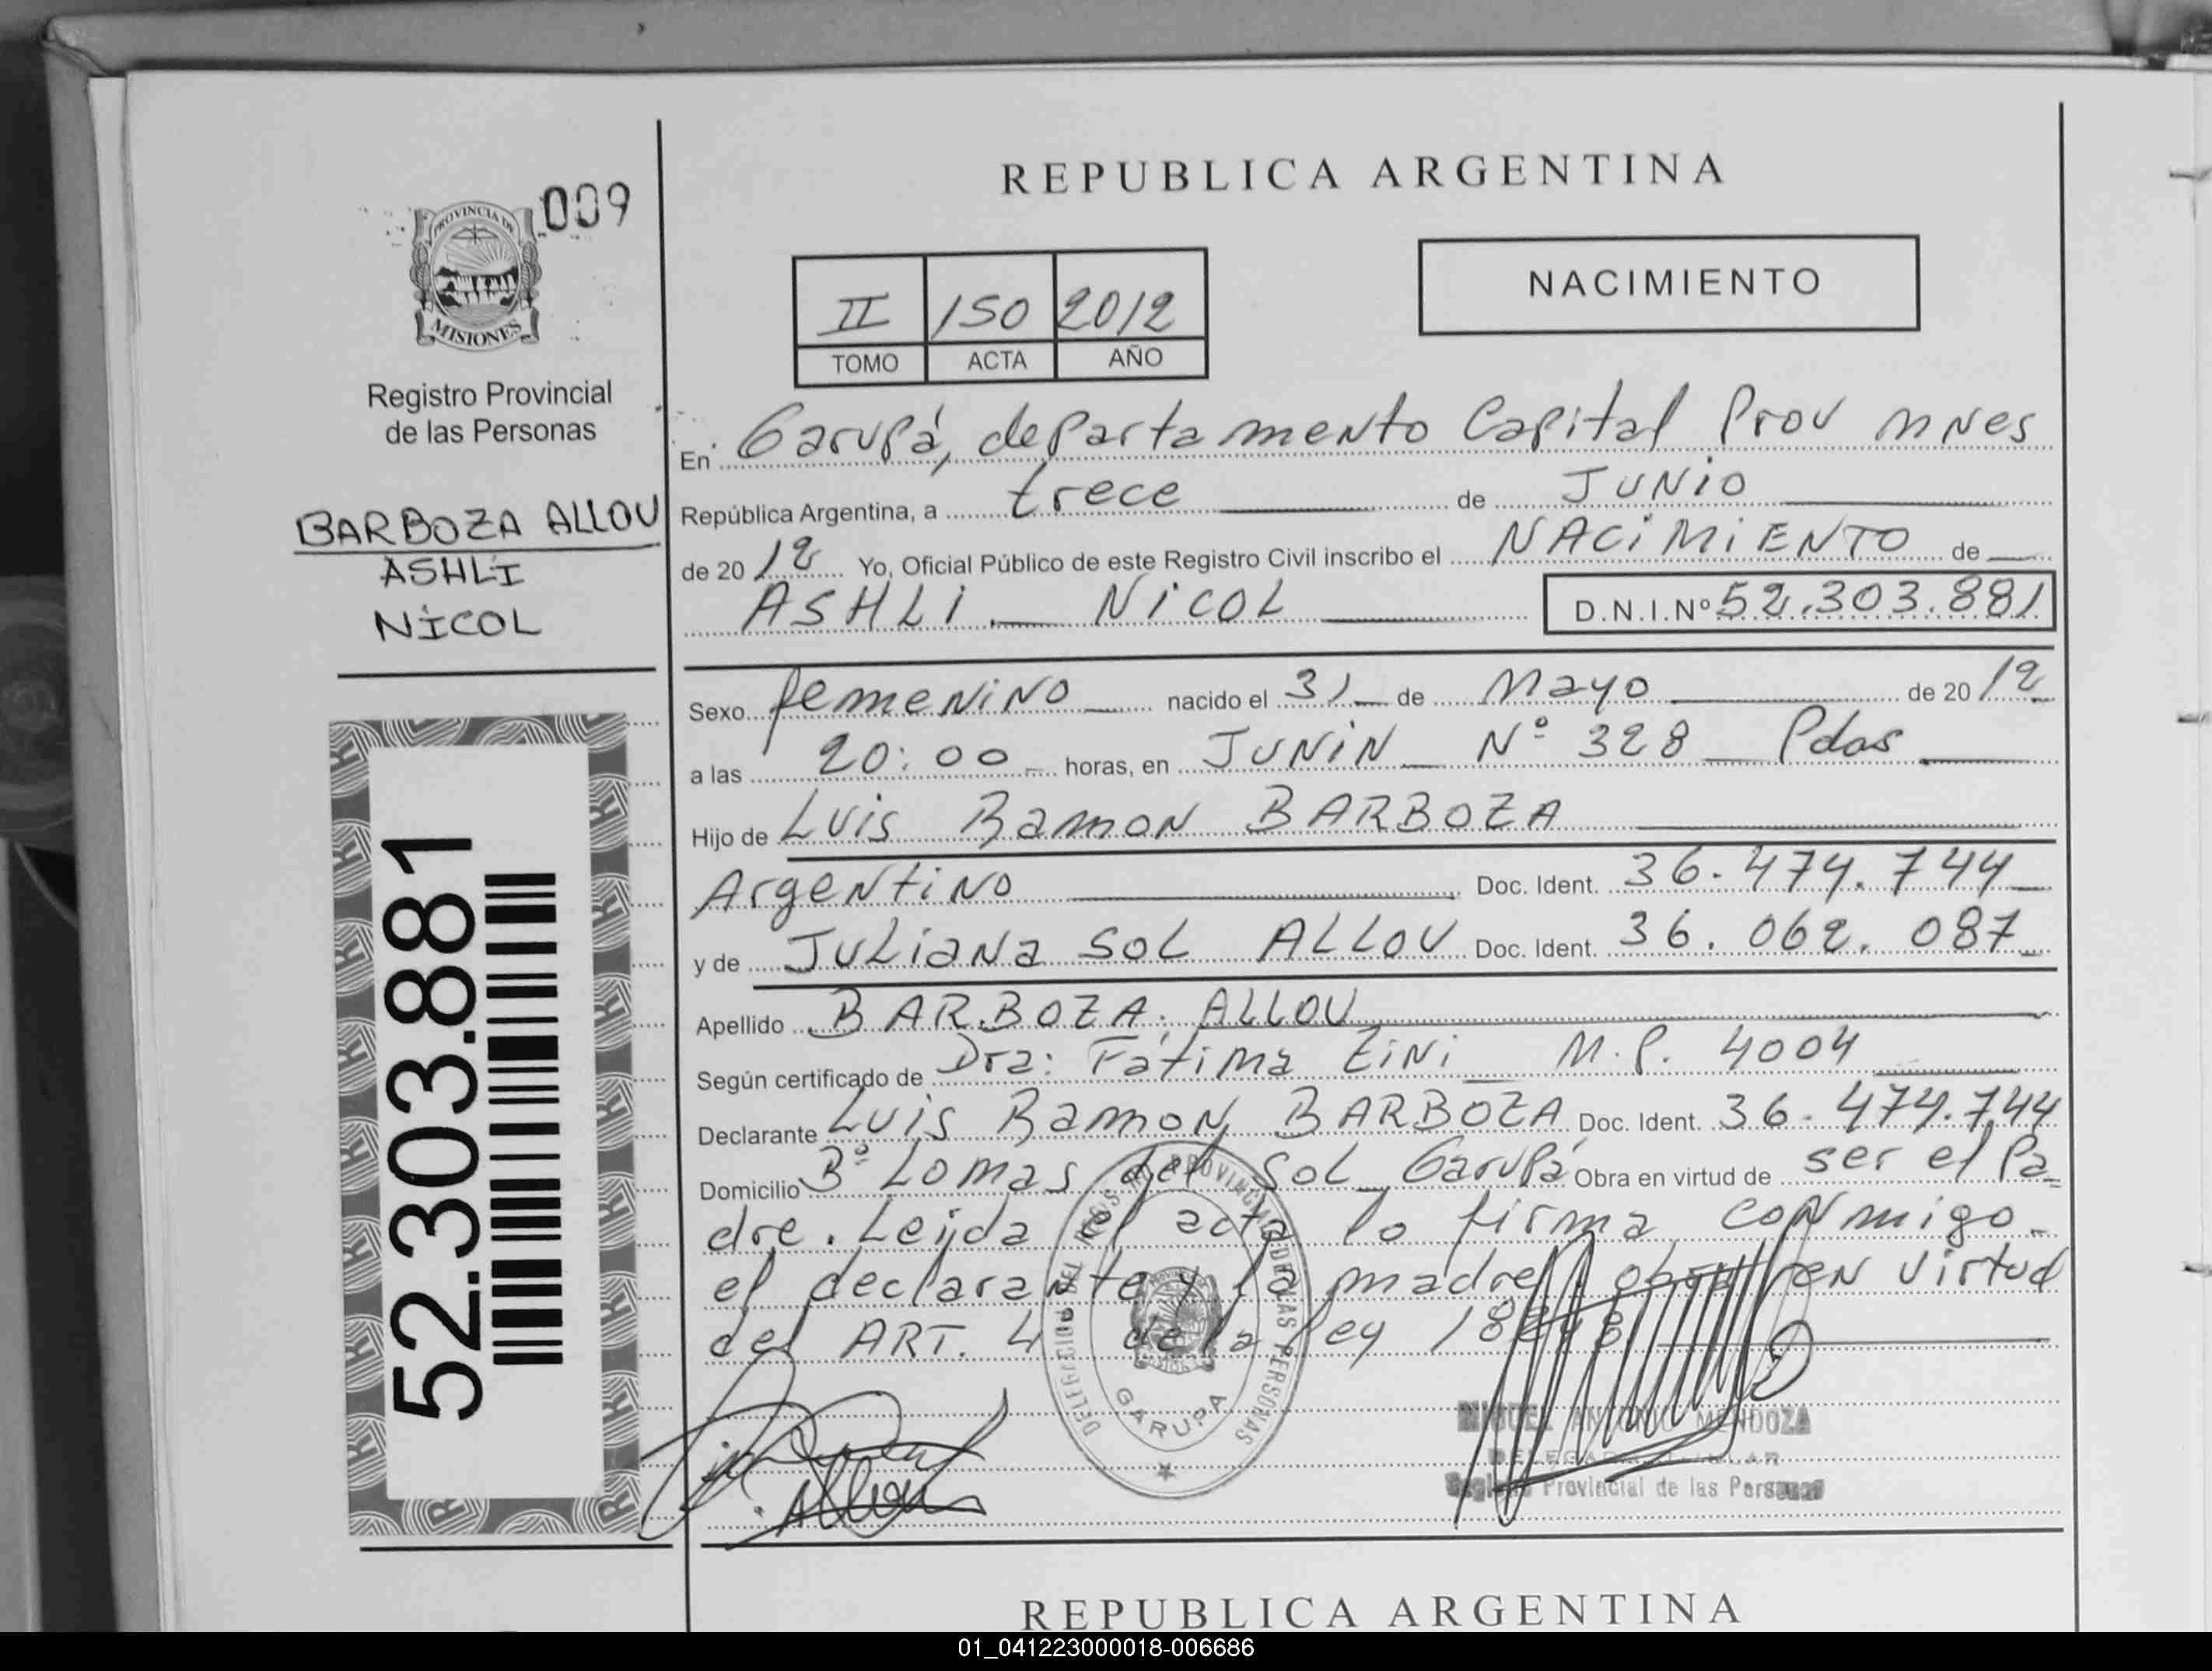 REPUBLICA ARGENTINA
009
PROVINCIA DE
MISIONES
Registro Provincial
de las Personas
BARBOZA ALLOU
ASHLI
NICOL
52.303.881
NACIMIENTO
II 150 2012
TOMO ACTA AÑO
En Garupá, departamento Capital Prov mnes
República Argentina, a trece de JUNIO
de 2012 Yo, Oficial Público de este Registro Civil inscribo el NACIMIENTO de
ASHLI NICOL D.N.I.Nº 52.303.881
Sexo femenino nacido el 31 de Mayo de 2012
a las 20:00 horas, en JUNIN Nº 328 Pdas
Hijo de Luis Ramon BARBOZA
Argentino Doc. Ident. 36.474.744
y de Juliana Sol ALLOU Doc. Ident. 36.062.087
Apellido BARBOZA ALLOU
Según certificado de Dra: Fátima Zini M.P. 4004
Declarante Luis Ramon BARBOZA Doc. Ident. 36.474.744
Domicilio Bº Lomas del Sol Garupá Obra en virtud de ser el Pa=
dre. Leida el acta lo firma conmigo
el declarante y la madre obra en virtud
del ART. 4 de la ley
DELEGACION DEL REGISTRO PROVINCIAL DE LAS PERSONAS
GARUPA
Allou
MIGUEL ANTONIO MENDOZA
Registro Provincial de las Personas
REPUBLICA ARGENTINA
01_041223000018-006686